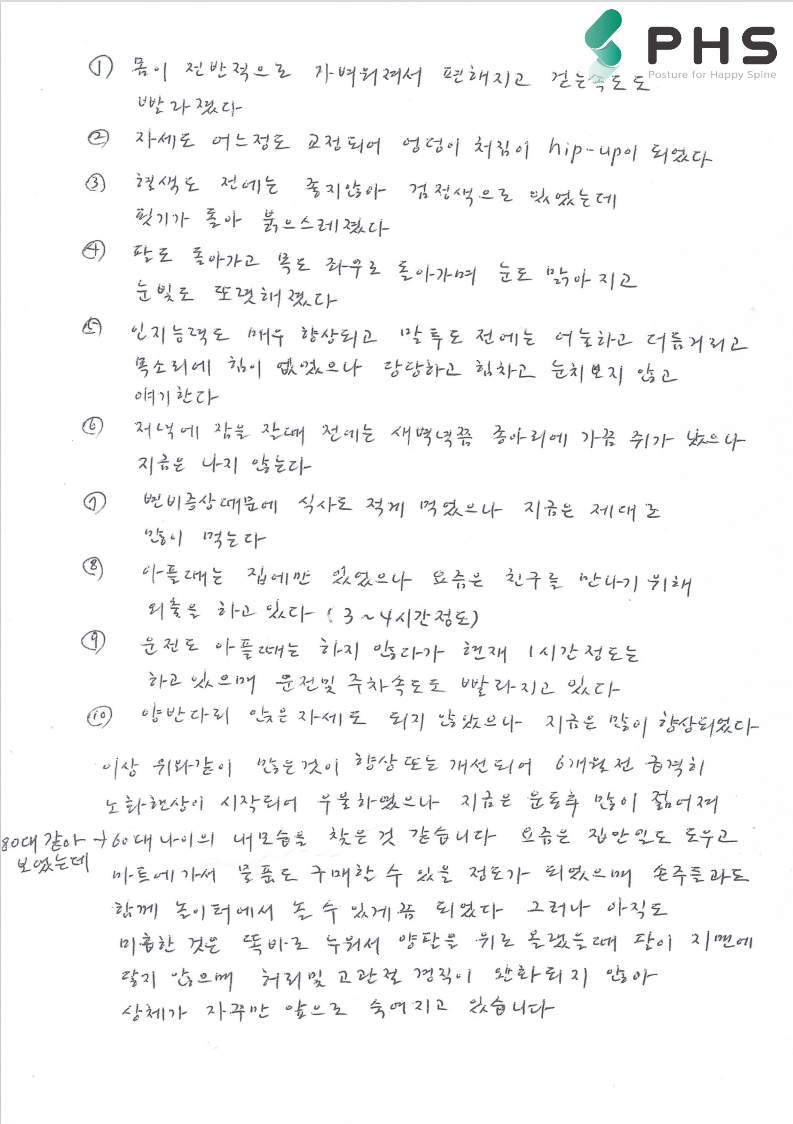 PHS
Posture for Happy Spine
① 몸이 전반적으로 가벼워져서 편해지고 걷는속도도
빨라졌다
② 자세도 어느정도 교정되어 엉덩이 처짐이 hip-up이 되었다
③ 혈색도 전에는 좋지않아 검정색으로 있었는데
핏기가 돌아 붉으스레졌다
④ 팔도 돌아가고 목도 좌우로 돌아가며 눈도 맑아지고
눈빛도 또렷해졌다
⑤ 인지능력도 매우 향상되고 말투도 전에는 어눌하고 더듬거리고
목소리에 힘이 없었으나 당당하고 힘차고 눈치보지 않고
얘기한다
⑥ 저녁에 잠을 잘때 전에는 새벽녘쯤 종아리에 가끔 쥐가 났으나
지금은 나지 않는다
⑦ 변비증상때문에 식사도 적게 먹었으나 지금은 제대로
많이 먹는다
⑧ 아플때는 집에만 있었으나 요즘은 친구를 만나기 위해
외출을 하고 있다 (3~4시간정도)
⑨ 운전도 아플때는 하지 않다가 현재 1시간정도는
하고 있으며 운전및 주차속도도 빨라지고 있다
⑩ 양반다리 앉은자세도 되지 않았으나 지금은 많이 향상되었다
이상 위와같이 많은것이 향상 또는 개선되어 6개월전 급격히
노화현상이 시작되어 우울하였으나 지금은 운동후 많이 젊어져
80대 같아 보였는데 → 60대나이의 내모습을 찾은것 같습니다 요즘은 집안일도 도우고
마트에가서 물품도 구매할 수 있을 정도가 되었으며 손주들과도
함께 놀이터에서 놀 수 있게끔 되었다 그러나 아직도
미흡한 것은 똑바로 누워서 양팔을 위로 올렸을때 팔이 지면에
닿지 않으며 허리및 고관절 경직이 완화되지 않아
상체가 자꾸만 앞으로 숙여지고 있습니다